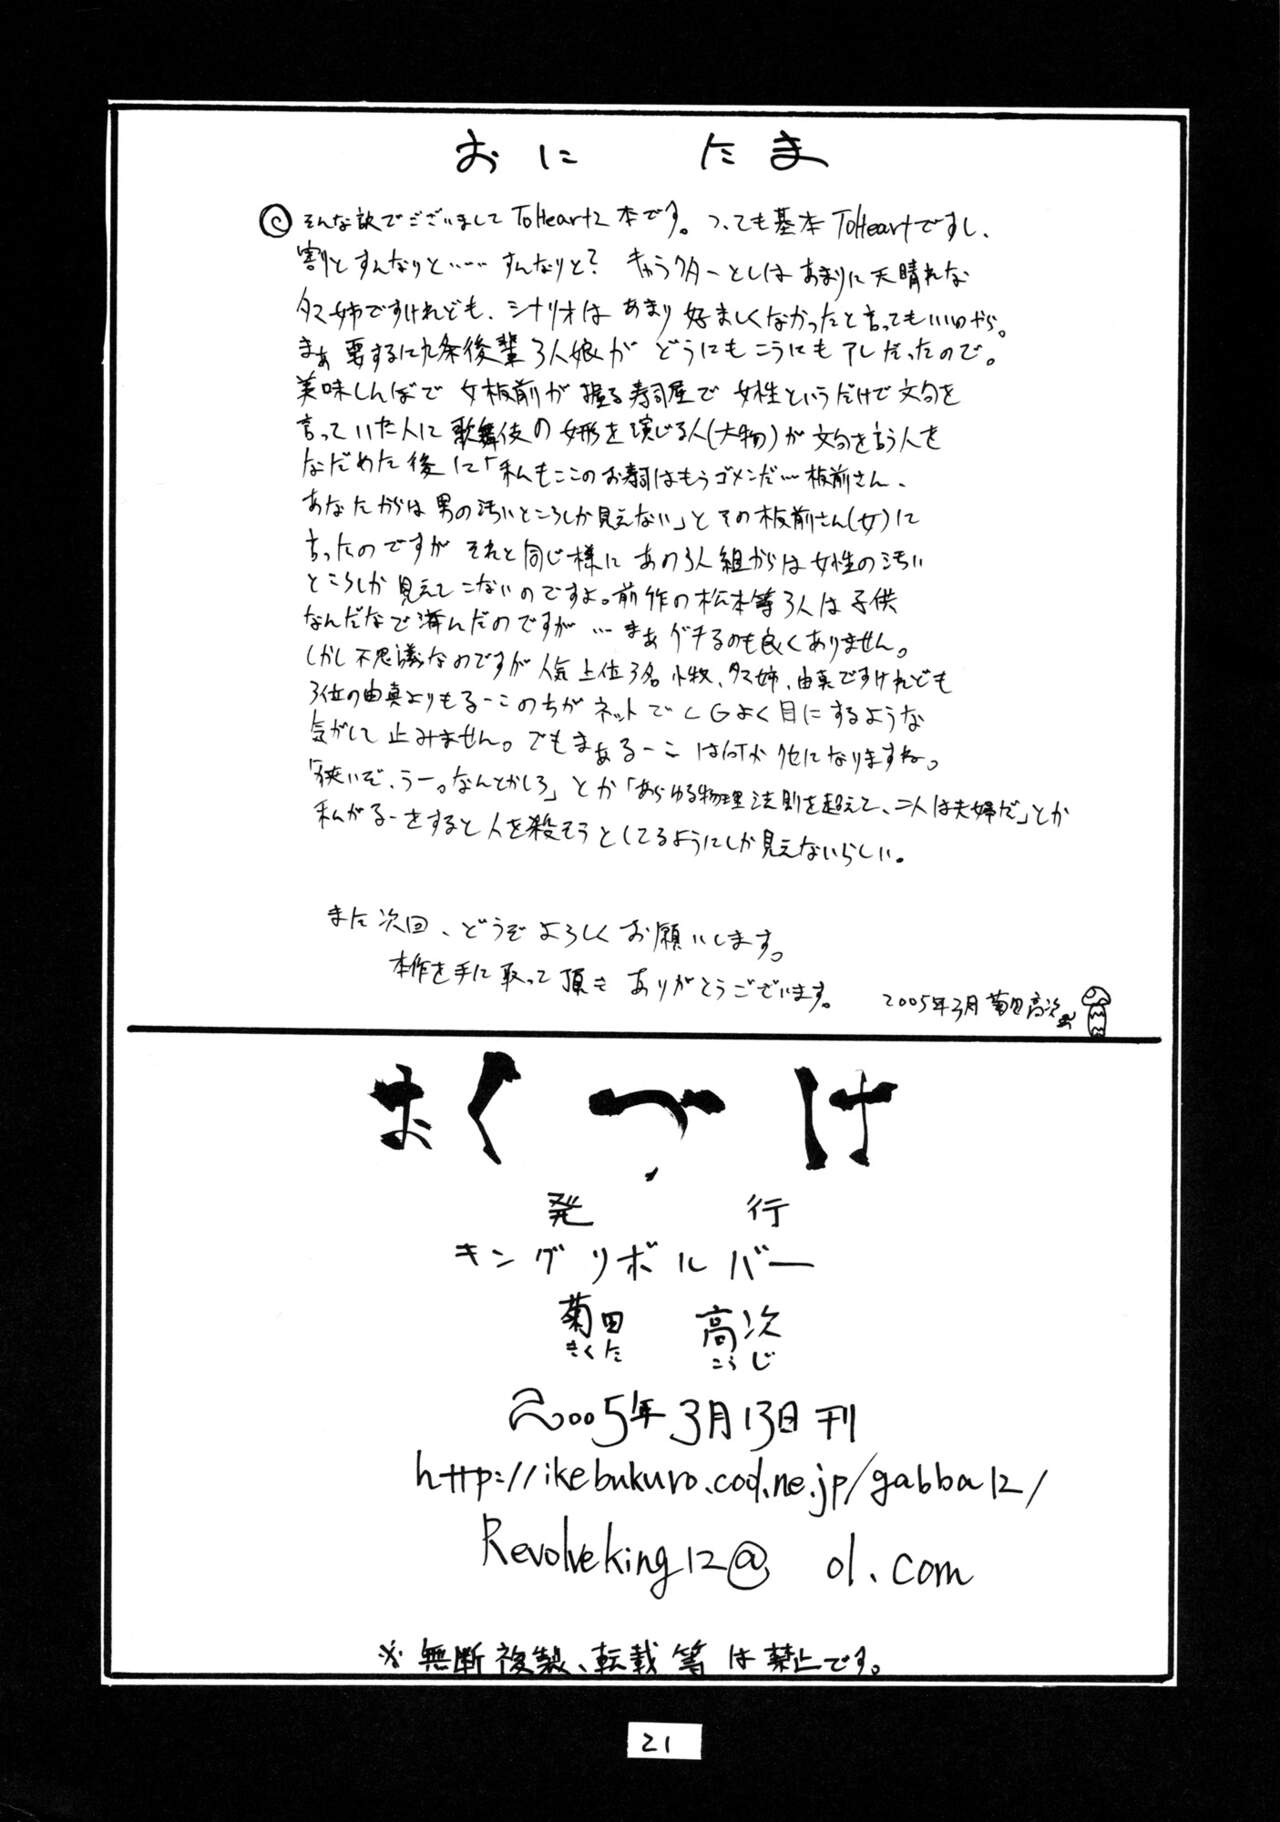 おに たま
そんな訳でございまして ToHeart2 本です。つっても基本 ToHeartですし、
割とすんなりと…… すんなりと? キャラクターとしはあまりに天晴れな
タマ姉ですけれども、シナリオはあまり好ましくなかったと言ってもいいやら。
まぁ要するに九条後輩3人娘がどうにもこうにもアレだったので。
美味しんぼで女板前が握る寿司屋で女性というだけで文句を
言っていた人に歌舞伎の女形を演じる人(大物)が文句を言う人を
なだめた後に「私もここのお寿司はもうゴメンだ…板前さん、
あなたからは男の汚いところしか見えない」とその板前さん(女)に
言ったのですがそれと同じ様にあの3人組からは女性の汚い
ところしか見えてこないのですよ。前作の松本等3人は子供
なんだなで済んだのですが…まぁグチるのも良くありません。
しかし不思議なのですが人気上位3名 小牧、タマ姉、由真ですけれども
3位の由真よりもるーこのちがネットでCGよく目にするような
気がして止みません。でもまぁるーこは何かクセになりますね。
「狭いぞ、うー。なんとかしろ」とか「あらゆる物理法則を超えて、二人は夫婦だ」とか
私がるーをすると人を殺そうとしてるようにしか見えないらしい。
また次回、どうぞよろしくお願いします。
本作を手に取って頂き ありがとうございます。
2005年3月 菊田高次
おくづけ
発 行
キングリボルバー
菊田 高次
きくた こうじ
2005年3月13日刊
http://ikebukuro.cool.ne.jp/gabba12/
Revolveking12@ ol.com
※無断複製、転載等は禁止です。
21